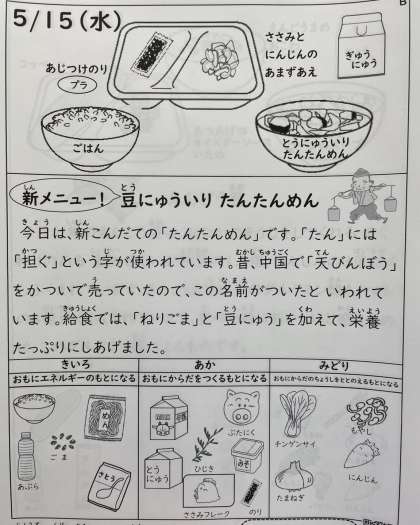 B
5/15(水)
ささみと
にんじんの
あまずあえ
ぎゅう
にゅう
あじつけのり
プラ
ごはん
とうにゅういり
たんたんめん
新メニュー! 豆にゅういり たんたんめん
今日は、新こんだての「たんたんめん」です。「たん」には
「担ぐ」という字が使われています。昔、中国で「天びんぼう」
をかついで売っていたので、この名前がついたと いわれて
います。給食では、「ねりごま」と「豆にゅう」を加えて、栄養
たっぷりにしあげました。
きいろ
あか
みどり
おもにエネルギーのもとになる
おもにからだをつくるもとになる
おもにからだのちょうしをととのえるもとになる
めん
ごま
あぶら
さとう
ぶたにく
とう
にゅう
ひじき
みそ
ささみフレーク
のり
チンゲンサイ
もやし
にんじん
たまねぎ